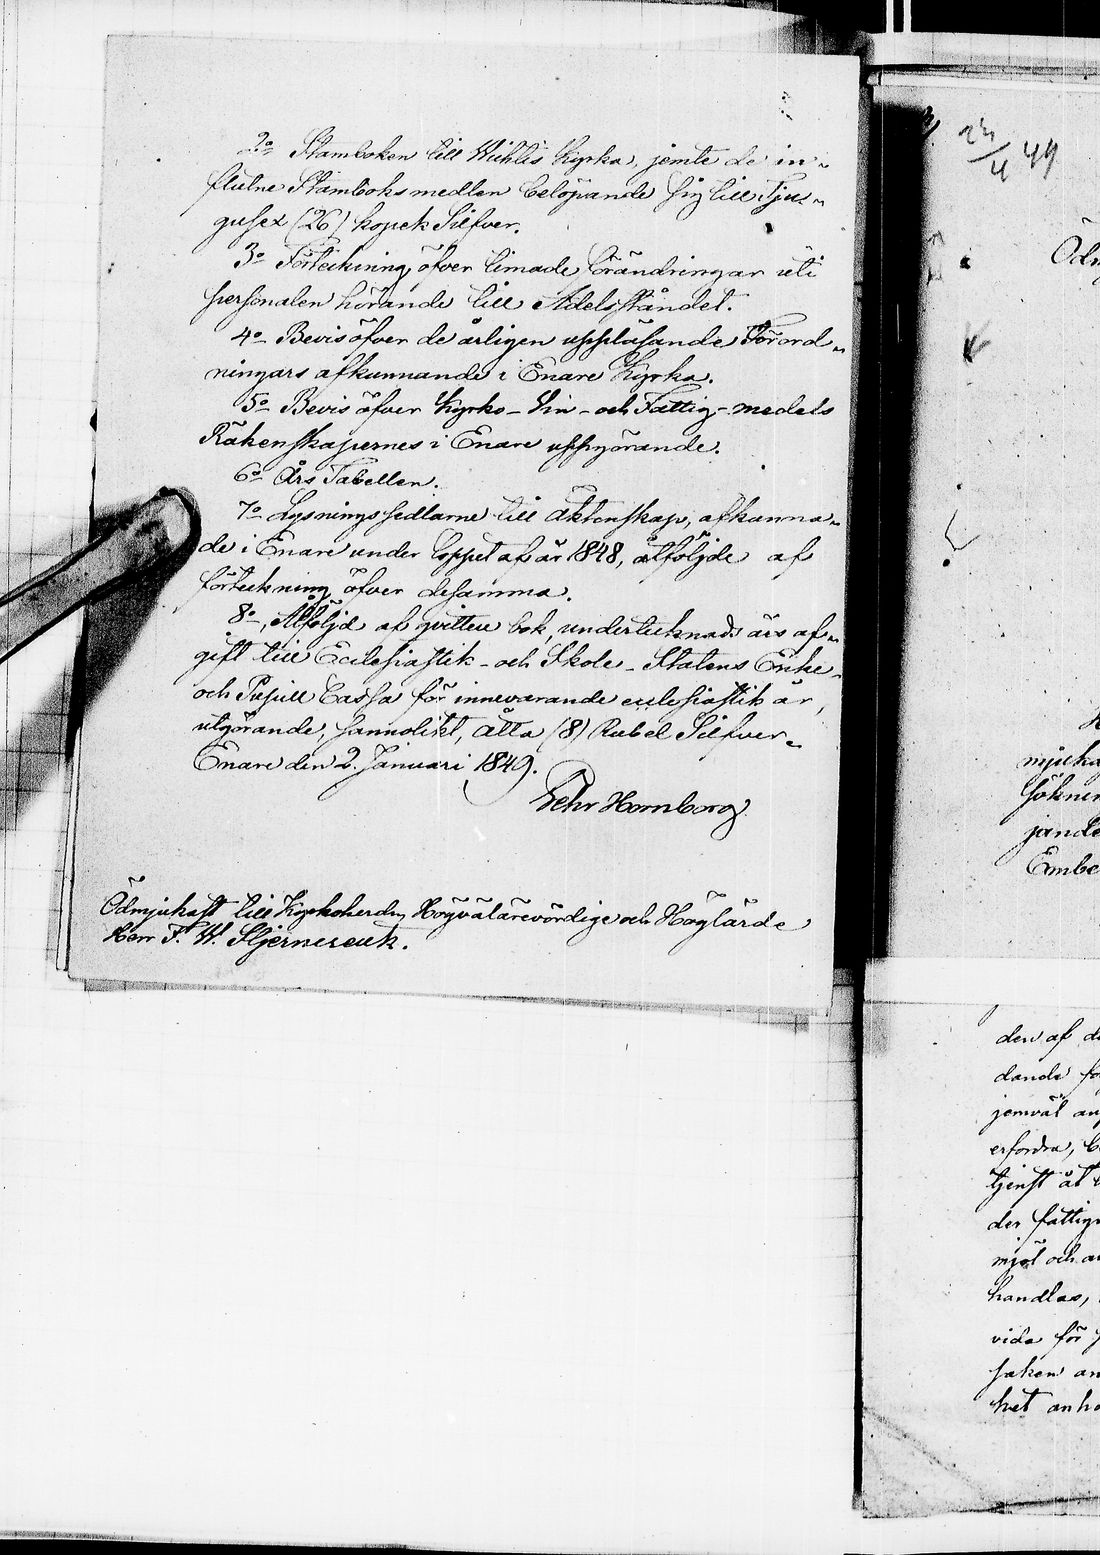 2o Stamboken till Wichtis Kyrka, jemte de in-
flutne Stamboksmedlen belöpande sig till Tju-
gusex (26) kopek Silfver.
3o Förteckning öfver timade förändringar uti
personalen hörande till Adelsståndet.
4o Bevis öfver de årligen uppläsande Förord-
ningars afkunnande i Enare Kyrka.
5o Bevis öfver Kyrko- Vin- och Fattig-medels
Räkenskapernes i Enare uppgörande.
6o Års Tabellen.
7o Lysningssedlarne till äktenskap, afkunna-
de i Enare under loppet af år 1848, åtföljde af
förteckning öfver desamma.
8o, Åtföljd af qvittens bok, undertecknads års af-
gift till Ecclesiastik- och Skole-Statens Enke-
och Pupill Cassa för innevarande ecclesiastik år,
utgörande, sannolikt, åtta (8) Rubel Silfver.
Enare den 2. Januari 1849.
Pehr Hornborg
Ödmjukast till Kyrkoherden, Högvälärevördige och Höglärde
Herr F. W. Stjerncreutz.
23/4 49
Ödm
mjuka
söknin
jande
Embe
den af d
dande fo
jemväl an
erfordra, b
tjenst åt
der fattig
mjöl och a
handlas,
vida för
saken an
het anh